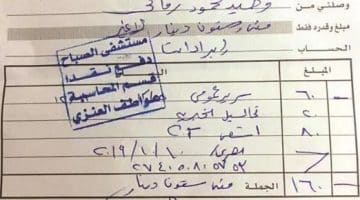 وصلني من وحيد محمود رفاعي
مبلغ وقدره فقط مئة وستون دينار لاغير
الحساب إيرادات
مستشفى الصباح
دفع نقدا
قسم المحاسبة
عواطف العنزي
المبلغ
٦٠ - سرير عمومي
٢٠ - تحاليل مخبرية
٨٠ - أشعة
٢٠١٩/١/١٠
١٦٠ - الجملة مئة ستون دينار